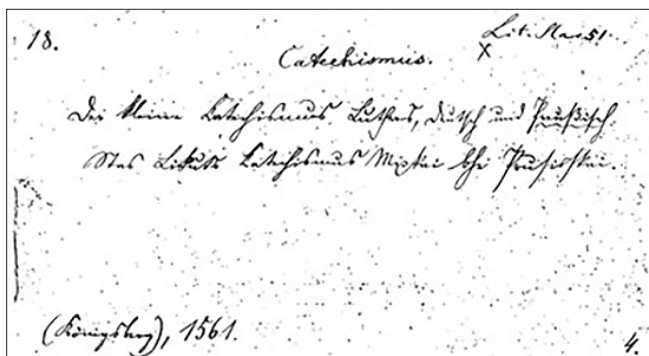 18.
Lit. Slav 51.
X
Catechismus.
Der kleine Catechismus Luthers, deutsch und Preußisch.
Stas Likuts Catechismus Mixkai bhe Prusiskai.
(Königsberg), 1561.
4.